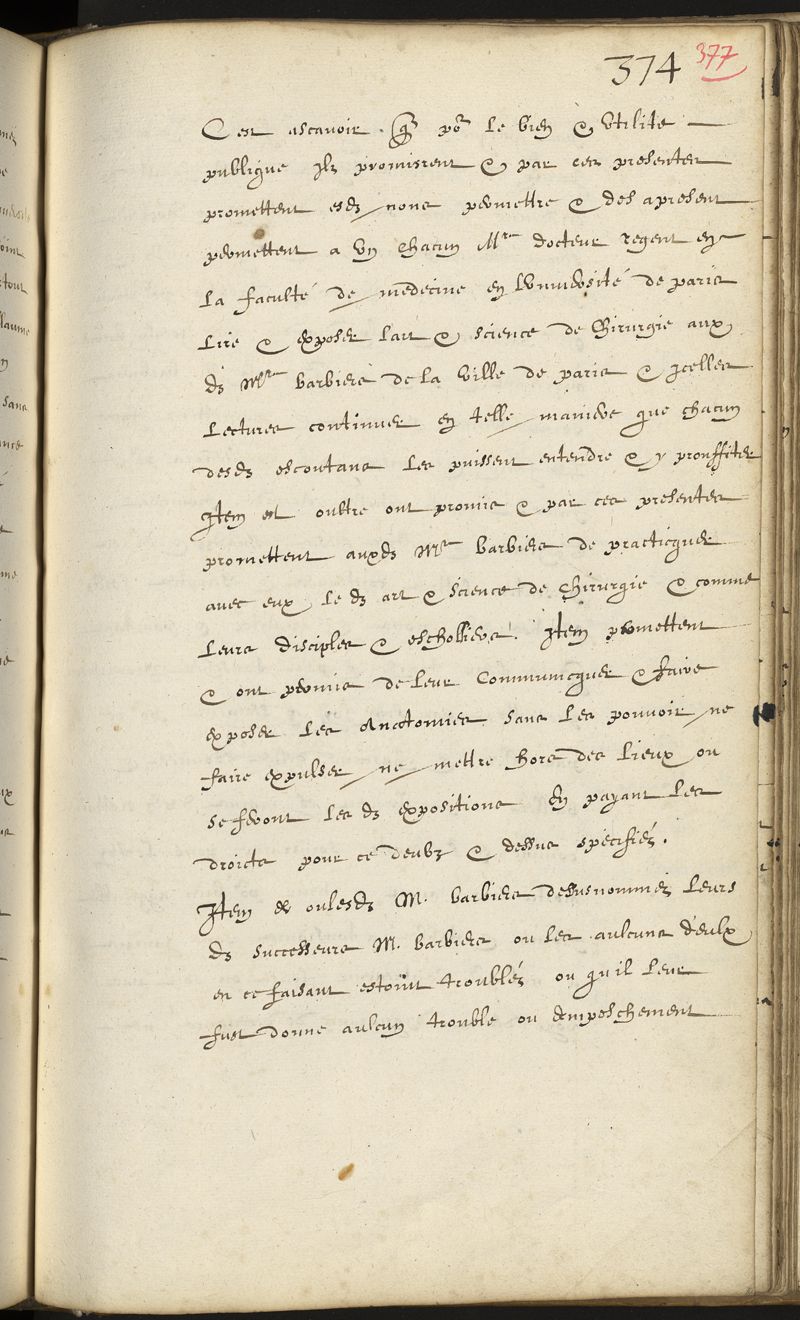 374 377
C'est ascavoir . que po^r le bien & utilite
publique Ilz promisrent & par ces presentes
promettent esd. noms permettre & des apresent
permettent a un chacun M^re docteur regent en
la faculté de medecine en luniversité de paris
lire & exposer lart & science de chirurgie aux
d. M^re barbiers de la ville de paris & jcelles
lectures continuer en telle maniere que chacun
desd. escoutans les puissent entendre & y prouffiter
Item et oultre ont promis & par ces presentes
promettent auxd. M^re barbiers de practicquer
avec eux led. art & science de chirurgie & comme
leurs disciples & escholliers. Item promettent
& ont promis de leur communicquer & faire
exposer les Anatomies sans les pouvoir ne
faire expulser ne mettre hors des lieux ou
se feront les d. expositions En payant les
droicts pour ce deubz & dessus specifiez.
Item & oulesd. M. barbiers dessusnommez leurs
d. successeurs M. barbiers ou les aulcuns d'eulx
en ce faisant estoint troublez ou qu'il leur
fust donne aulcun trouble ou empeschement